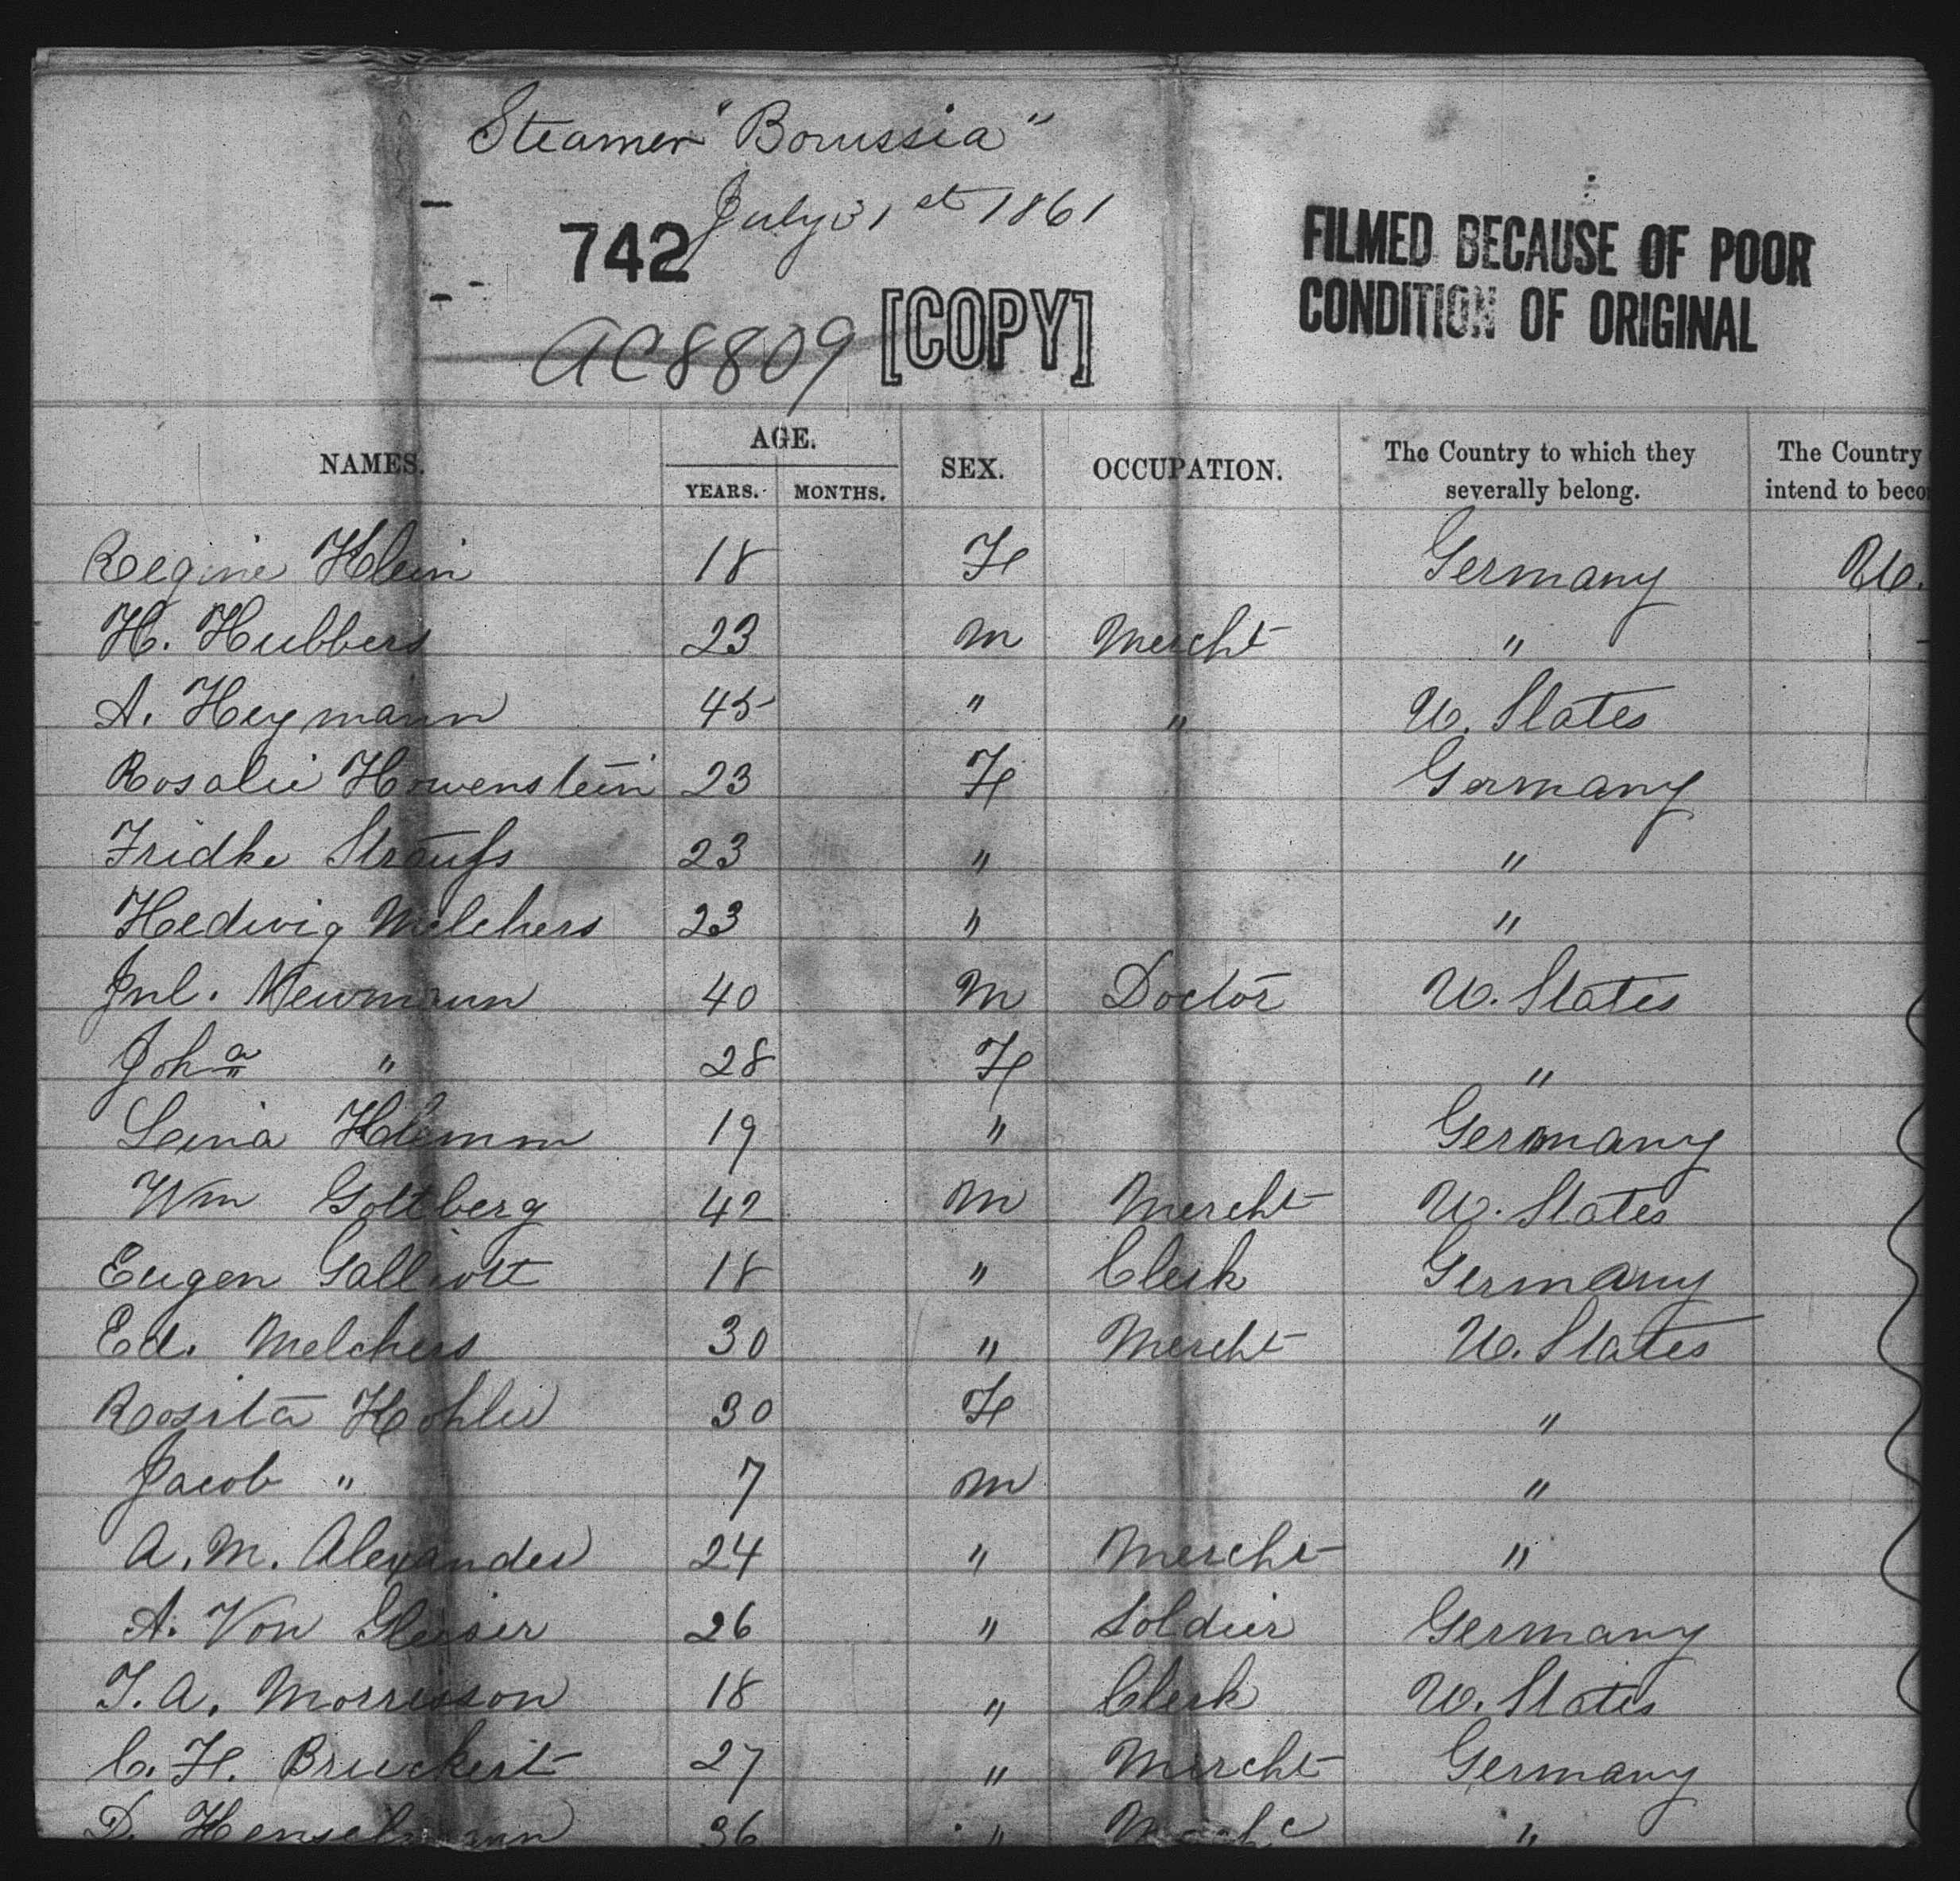 Steamer "Borussia"
July 31st 1861
742
AC8809 [COPY]
FILMED BECAUSE OF POOR
CONDITION OF ORIGINAL
NAMES. AGE. YEARS. MONTHS. SEX. OCCUPATION. The Country to which they severally belong. The Country intend to beco
Regine Klein 18 F Germany
H. Hubbers 23 M Mercht "
A. Heymann 45 " " U. States
Rosalie Howenstein 23 F Germany
Fridke Strauss 23 " "
Hedwig Melchers 23 " "
Jul. Newmann 40 M Doctor U. States
Joha " 28 F "
Lina Klemm 19 " Germany
Wm Goltberg 42 M Mercht U. States
Eugen 18 " Clerk Germany
Ed. Melchers 30 " Mercht U. States
Rosita Kohler 30 F "
Jacob " 7 M "
A. M. Alexander 24 " Mercht "
A. Von Gleiser 26 " Soldier Germany
T. A. Morrisson 18 " Clerk U. States
C. H. Bruckert 27 " Mercht Germany
D. Henselmann 36 " "